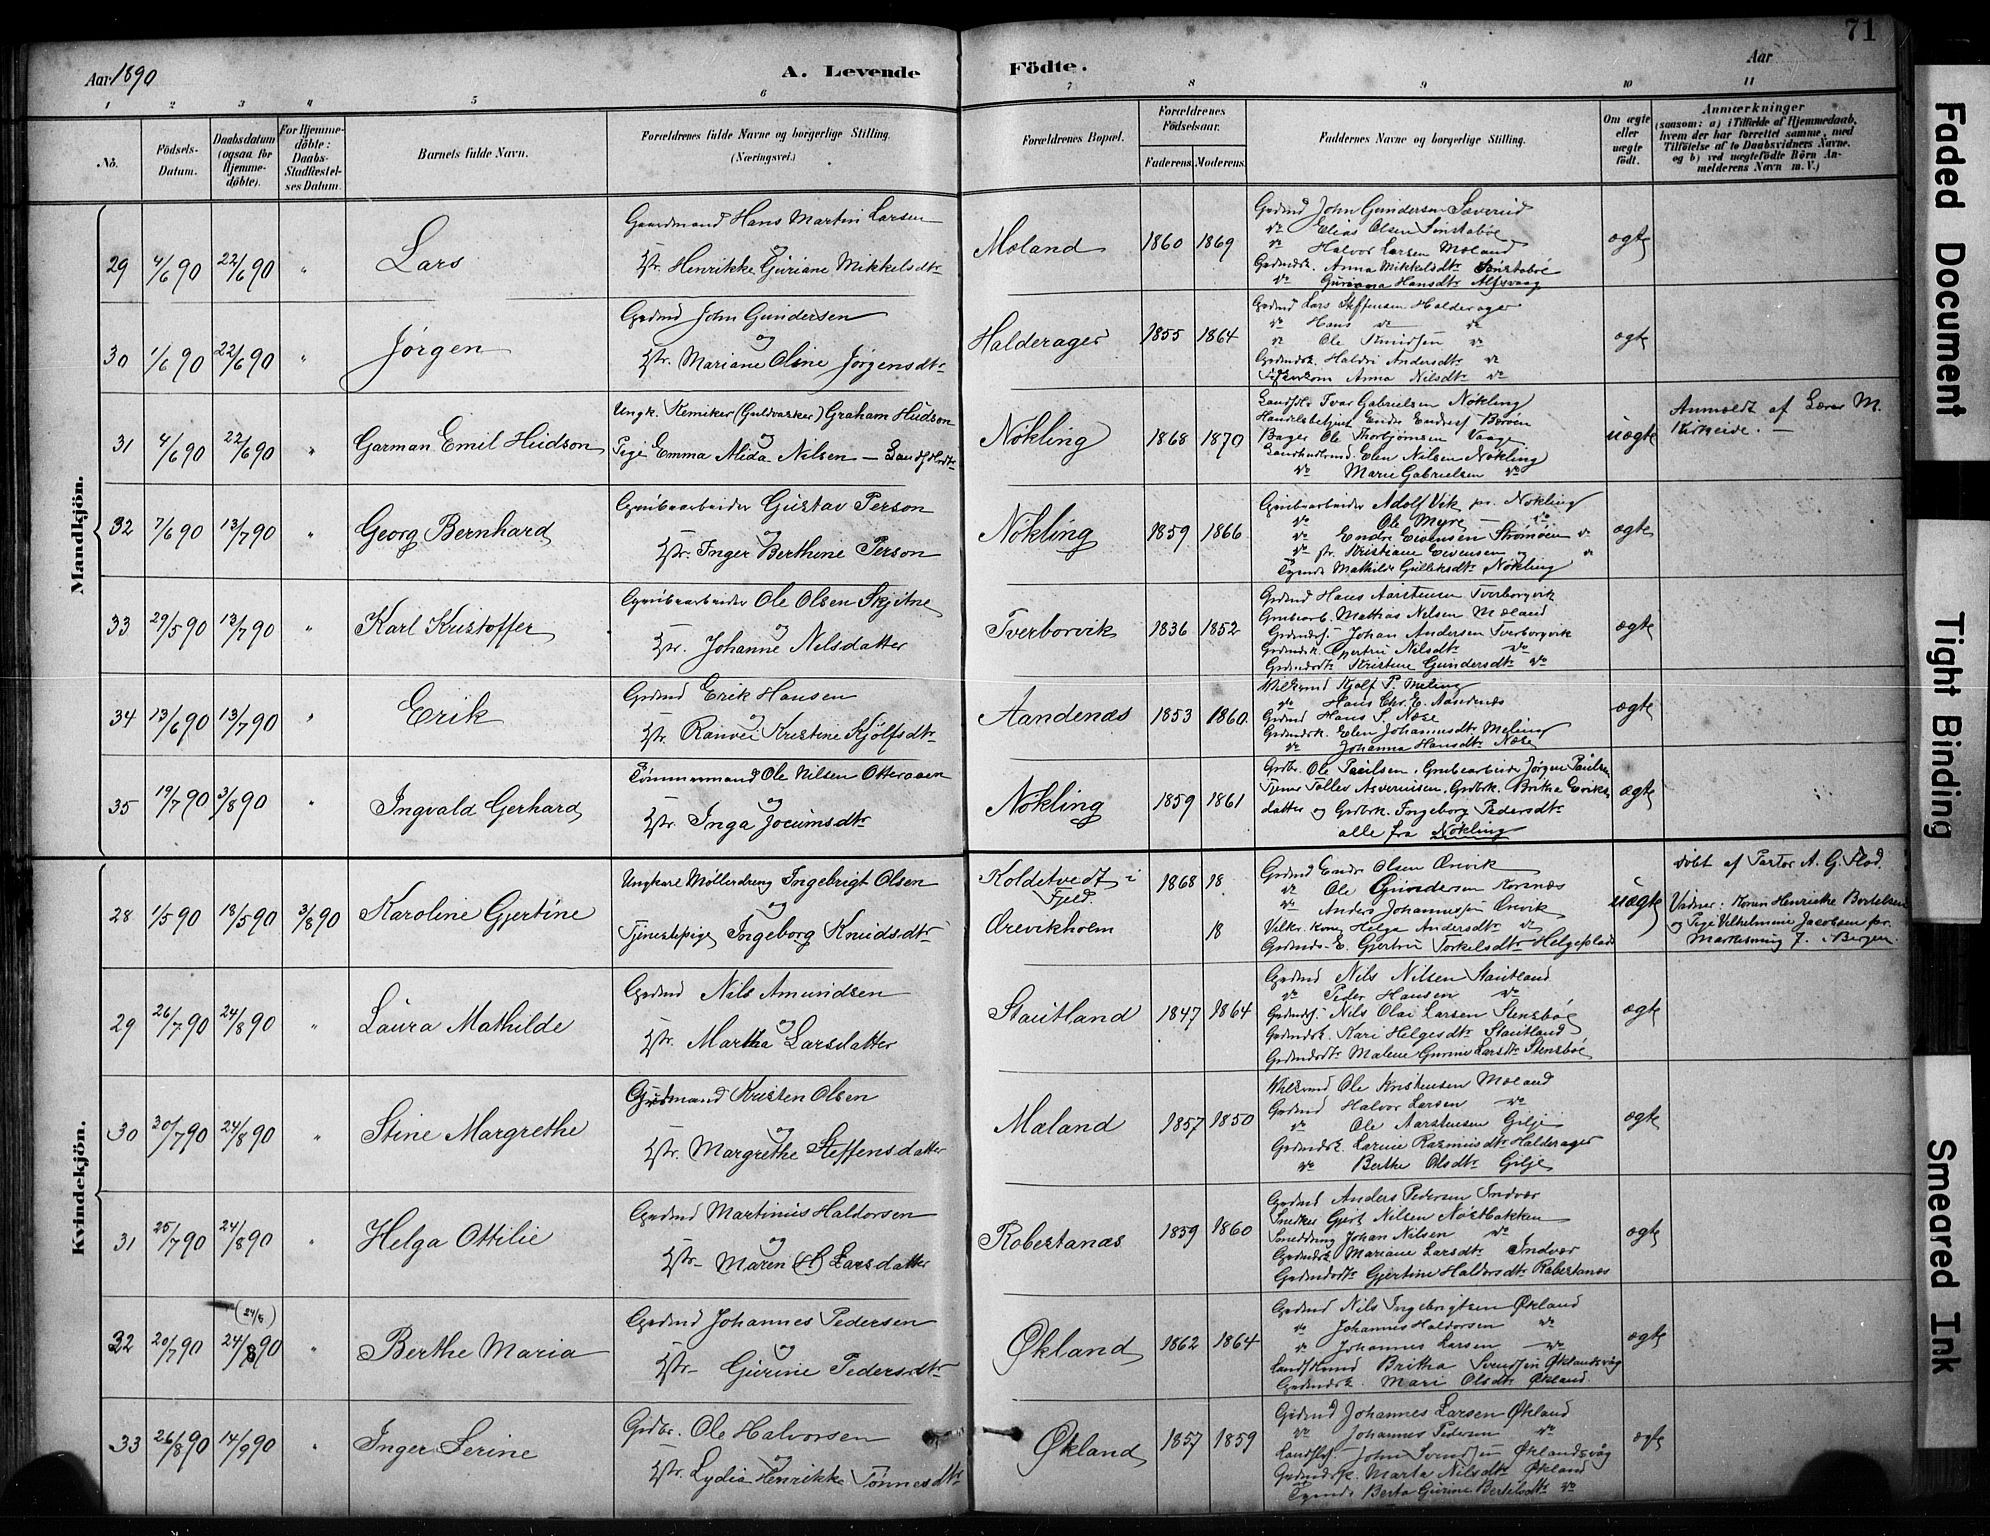 71
Aar 1890
A. Levende
Födte.
Aar
1 2 3 4 5 6 7 8 9 10 11
No.
Födsels-
Datum.
Daabsdatum
(ogsaa for
Hjemme-
döbte).
For Hjemme-
döbte:
Daabs-
Stadfæstel-
ses Datum.
Barnets fulde Navn.
Forældrenes fulde Navne og borgerlige Stilling.
(Næringsvei.)
Forældrenes Bopæl.
Forældrenes
Födselsaar.
Faderens. Moderens.
Faddernes Navne og borgerlige Stilling.
Om ægte
eller
uægte
födt.
Anmærkninger
(saasom: a) i Tilfælde af Hjemmedaab,
hvem der har forrettet samme, med
Tilföielse af to Daabsvidners Navne,
og b) ved uægtefödte Börn An-
melderens Navn m. V.)
Mandkjön.
29 4/6 90 22/6 90 " Lars
Gaardmand Hans Martin Larsen
og
Hstr. Henrikke Guriane Mikkelsdtr
Mæland 1860 1869
Grdmd John Gundersen Sæverud
do Elias Olsen Sönstabøe
do Halvor Larsen Mæland
Grdmdsk. Anna Mikkelsdtr Sönstabøe
do Guriana Hansdtr Alfsvaag
ægte
30 1/6 90 22/6 90 " Jørgen
Grdmd John Gundersen
og
Hstr. Mariane Oline Jørgensdtr
Halderager 1855 1864
Grdmd Lars Steffensen Halderager
do Hans do do
do Ole Knudsen do
Grdmdsk. Haldis Andersdtr do
Anna Nilsdtr do
ægte
31 4/6 90 22/6 90 " Garman Emil Hudson
Ungk. Kemiker (Guldvasker) Graham Hudson
og
Pige Emma Alida Nilsen — Landh. Hdtr
Nøkling 1868 1870
Ivar Gabrielsen Nøkling
Handelsbetjent Endre Endresf Børøen
Bager Ole Thorbjørnsen Vaage
Elen Nilsen Nøkling
do Marie Gabrielsen do
uægte
Anmeldt af Lærer M.
Kirkeide. —
32 7/6 90 13/7 90 " Georg Bernhard
Grubearbeider Gustav Person
og
Hstr. Inger Berthine Person
Nøkling 1859 1866
Grubearbeider Adolf Vik pr. Nøkling
do Ole Myre — do
do Endre Eivensen Strømøen do
do Kristiane Eivensen og do
Tjende Mathilde Gulleksdtr Nøkling
ægte
33 29/5 90 13/7 90 " Karl Kristoffer
Grubearbeider Ole Olsen Skjitne
og
Hstr. Johanne Nilsdatter
Tverborvik 1836 1852
Grdmd Hans Aarstensen Tverborgvik
Grubearb. Mathias Nilsen Mæland
Grdmdsf. Johan Andersen Tverborgvik
Grdmdsk. Gjertru Nilsdtr do
Grdmdsdtr Kristine Gundersdtr do
ægte
34 13/6 90 13/7 90 " Erik
Grdmd Erik Hansen
og
Hstr. Ranvei Kristine Kjölfsdtr
Aandenæs 1853 1860.
Kjolf P. Meling
do Hans Chr. E. Aandenæs
Grdmd Hans S. Næse
Grdmdsk. Elen Johannesdtr Meling
do Johanna Hansdtr Næse
ægte
35 19/7 90 3/8 90 " Ingvald Gerhard
Tømmermand Ole Nilsen Otteraaen
og
Hstr. Inga Jocumsdtr
Nøkling 1859 1861
Grdbr. Ole Paulsen, Grubearbeider Jørgen Paulsen
Tjener Tollev Asveruisen, Grdbrk. Britha Eriks-
datter og Grdbrk. Ingeborg Pedersdtr
alle fra Nøkling
ægte
Kvindekjön.
28 1/5 90 18/5 90 3/8 90 Karoline Gjertine
Ungkarl Møllerdreng Ingebrigt Olsen
og
Tjenestepige Ingeborg Knudsdtr
Koldetvedt i
Fjeld.
Ørevikholm
1868 18
18
Grdmd Endr Olsen Ørevik
do Ole Gundersen Kornæs
do Anders Johannessen Ørvik
Helga Andersdtr do
Gjertru Torkelsdtr Helgeplads
uægte
döbt af Pastor A. G. Flod.
Vidner: Konen Henrikke Bertelsen
og Pige Vilhelmine Jacobsen
7. i Bergen.
29 26/7 90 24/8 90 " Laura Mathilde
Grdmd Nils Amundsen
og
Hstr. Martha Larsdatter
Stautland 1847 1864
Grdmd Nils Nilsen Stautland
do Peder Hansen do
Grdmdsf. Nils Olai Larsen Stensbøe
Grdmdsk. Kari Helgesdtr Stautland
Grdmdsdtr Malene Gurine Larsdtr Stensbøe
ægte
30 30/7 90 24/8 90 " Stine Margrethe
Grdmand Kristen Olsen
og
Hstr. Margrethe Steffensdatter
Mæland 1857 1850
Ole Kristensen Mæland
Grdmd Halvor Larsen do
do Ole Aarstensen Gilje
Grdmdsk. Larine Rasmusdtr Halderager
do Berthe Olsdtr Gilje
ægte
31 25/7 90 24/8 90 " Helga Ottilie
Grdmd Martinus Haldorsen
og
Hstr. Maren (H) Larsdatter
Robertanæs 1859 1860
Grdmd Anders Pedersen Indvær
Snedker Gjert Nilsen Nøstbakken
Smeddreng Johan Nilsen do
Grdmdsk Mariane Larsdtr Indvær
Grdmdsdtr Gjertine Haldorsdtr Robertanæs
ægte
(24/8)
32 20/7 90 24/8 90 " Berthe Maria
Grdmd Johannes Pedersen
og
Hstr. Gurine Pedersdtr
Økland 1862 1864
Grdmd Nils Ingebrigtsen Økland
do Johannes Haldorsen do
do Johannes Larsen do
Britha Svendsen Øklandsvåg
Grdmdsk. Mari Olsdtr Økland.
ægte
33 26/8 90 14/9 90 " Inger Serine
Grdbr. Ole Halvorsen
og
Hstr. Lydia Henrikke Tønnesdtr
Økland 1857 1859
Grdmd Johannes Larsen Økland
do Johannes Pedersen do
John Svendsen Øklandsvåg
Grdmdsk. Marta Nilsdtr Økland
Tjende Berta Gurine Bertelsdtr do
ægte
Faded Document
Tight Binding
Smeared Ink